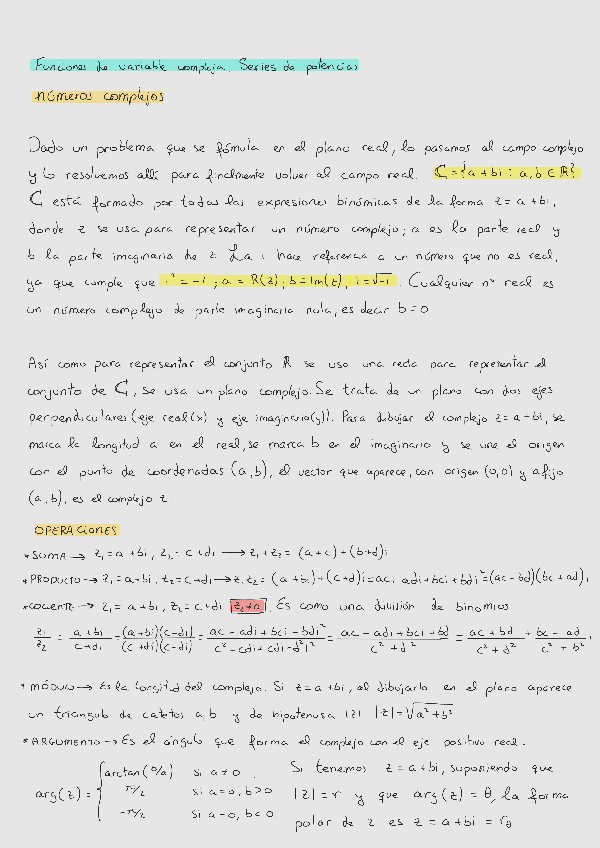 Funciones de variable compleja. Series de potencias
números complejos
Dado un problema que se fórmula en el plano real, lo pasamos al campo complejo
y lo resolvemos allí para finalmente volver al campo real. ℂ = {a + bi : a, b ∈ ℝ}
ℂ está formado por todas las expresiones binómicas de la forma z = a + bi,
donde z se usa para representar un número complejo; a es la parte real y
b la parte imaginaria de z. La i hace referencia a un número que no es real,
ya que cumple que i² = -1 ; a = R(z) ; b = Im(z), i = √-1. Cualquier nº real es
un número complejo de parte imaginaria nula, es decir b = 0.
Así como para representar el conjunto ℝ se usa una recta para representar el
conjunto de ℂ, se usa un plano complejo. Se trata de un plano con dos ejes
perpendiculares (eje real (x) y eje imaginario (y)). Para dibujar el complejo z = a + bi, se
marca la longitud a en el real, se marca b en el imaginario y se une el origen
con el punto de coordenadas (a, b), el vector que aparece, con origen (0,0) y afijo
(a, b), es el complejo z.
OPERACIONES
* SUMA → z₁ = a + bi, z₂ = c + di → z₁ + z₂ = (a + c) + (b + d)i
* PRODUCTO → z₁ = a + bi, z₂ = c + di → z₁ z₂ = (a + bi) + (c + d)i = ac + adi + bci + bdi² = (ac - bd)(bc + ad)i
* COCIENTE → z₁ = a + bi, z₂ = c + di |z₂ ≠ 0|. Es como una división de binomios
z₁/z₂ = (a + bi)/(c + di) = (a + bi)(c - di)/(c + di)(c - di) = (ac - adi + bci - bdi²)/(c² - cdi + cdi - d²i²) = (ac - adi + bci + bd)/(c² + d²) = (ac + bd)/(c² + d²) + (bc - ad)/(c² + b²) i
* MÓDULO → Es la longitud del complejo. Si z = a + bi, al dibujarlo en el plano aparece
un triangulo de catetos a, b y de hipotenusa |z| |z| = √a² + b²
* ARGUMENTO → Es el ángulo que forma el complejo con el eje positivo real.
arg(z) = { arctan(b/a) si a ≠ 0
π/2 si a = 0, b > 0
-π/2 si a = 0, b < 0
Si tenemos z = a + bi, suponiendo que
|z| = r y que arg(z) = θ, la forma
polar de z es z = a + bi = r_θ